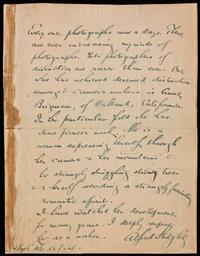 Every one photographs now a days. There
are ever increasing myriads of
photographs. Yet photographers of
distinction are rarer than ever. One
who has achieved deserved distinction
amongst camera workers is Annie
Brigman, of Oakland, California.
In her particular field she has
done pioneer work. She is a
woman expressing herself through
her camera & her mountains &
her strangely struggling striving trees
& herself rendering a strangely
romantic spirit.
I have watched her development
for many years. I deeply respect
her as a worker.
Alfred Stieglitz